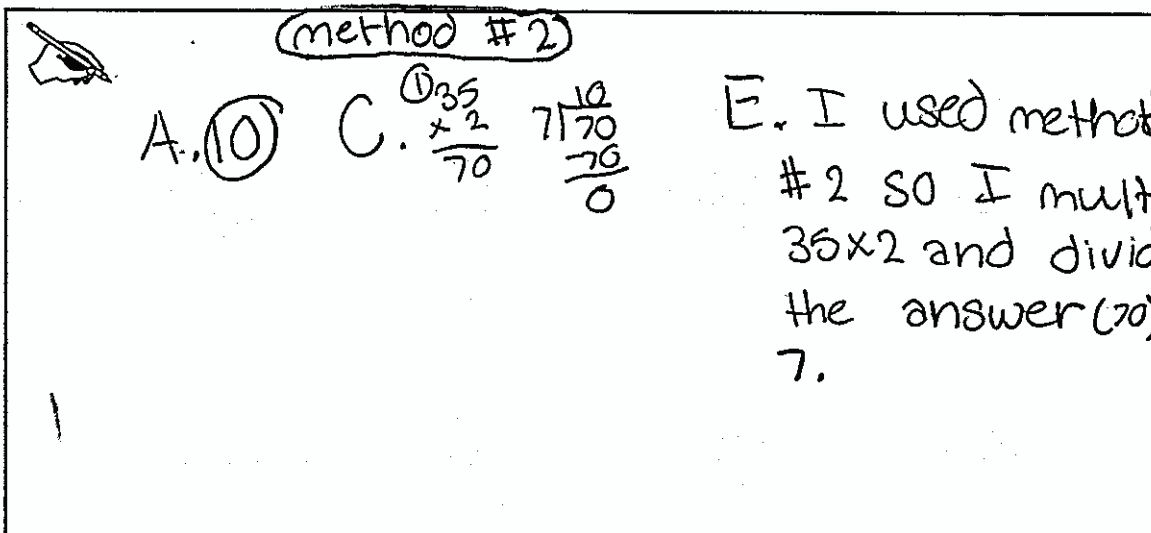 method #2
A. 10
C. ①35
× 2
70
10
7 70
70
0
E. I used method
#2 so I mult
35×2 and divid
the answer (70)
7.